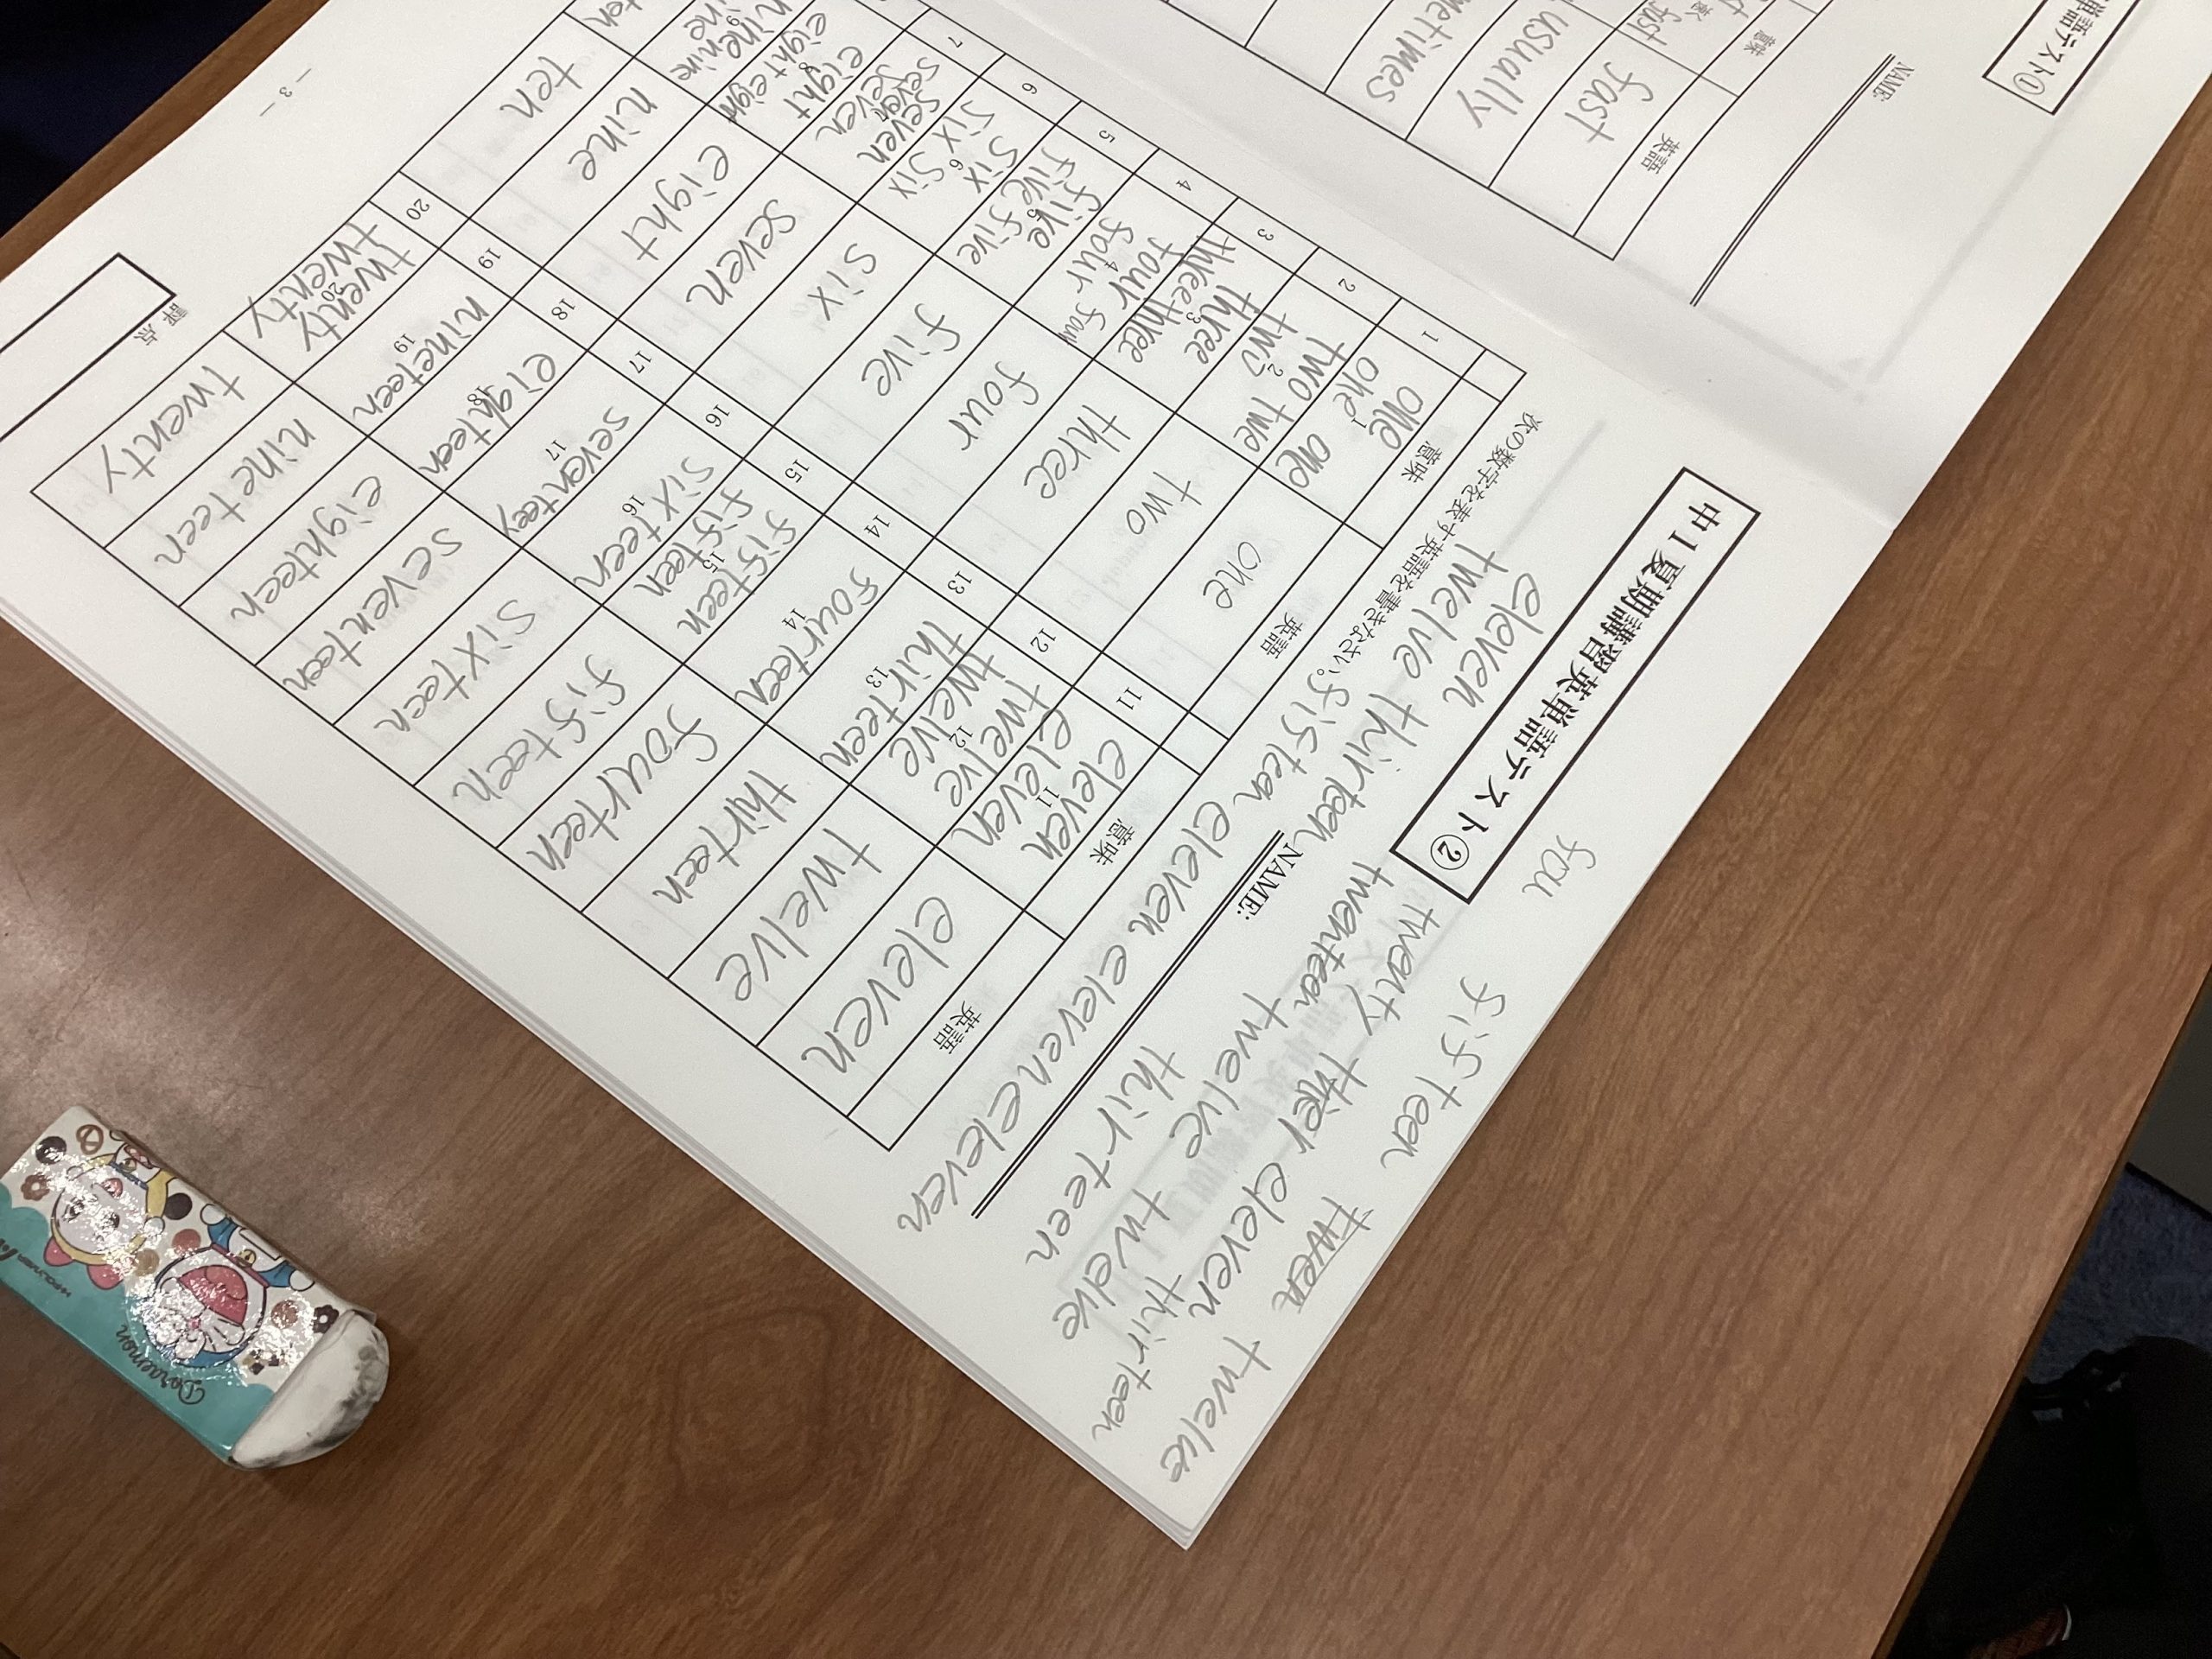 単語テスト①
NAME:
意味
英語
fast
fast
usually
metimes
fou
fifteen
twen
twelve
中1夏期講習英単語テスト②
twenty
eleven
thirteen
eleven
twelve
thirteen
twenteen
twelve
twelve
thirteen
NAME:
次の数字を表す英語を書きなさい。
fifteen
eleven
eleven
eleven
意味
英語
意味
英語
1
one
one
1
one
one
11
eleven
11
eleven
eleven
2
two
2
two
twe
two
12
twelve
12
twelve
twelve
3
three
three
3
three
three
13
thirteen
13
thirteen
4
four
4
four
four
14
fourteen
14
fourteen
5
five
five
5
five
five
15
fifteen
15
fifteen
fifteen
6
six
six
6
six
six
16
sixteen
16
sixteen
7
seven
seven
7
seven
seven
seven
17
seventeey
17
seventeen
eight
eight
8
eight
eight
eight
18
eighteen
18
eighteen
nine
nine
9
nine
nine
19
nineteen
19
nineteen
ten
ten
20
twenty
20
twenty
twenty
評点
— 3 —
Doraemon